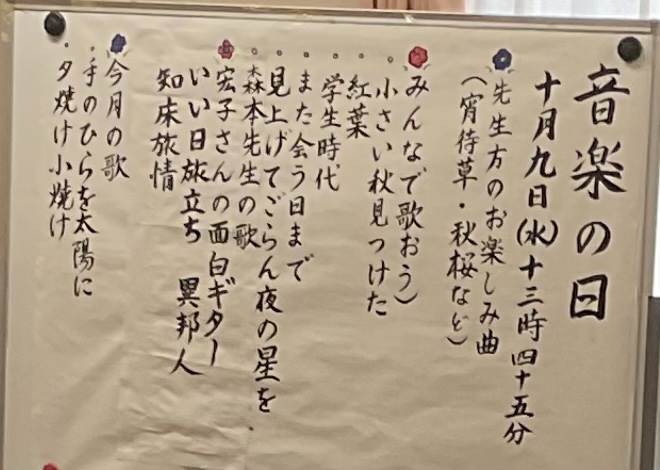 音楽の日
十月九日(水)十三時四十五分
先生方のお楽しみ曲
(宵待草・秋桜など)
みんなで歌おう)
・小さい秋見つけた
・紅葉
・学生時代
・また会う日まで
・見上げてごらん夜の星を
・森本先生の歌
宏子さんの面白ギター
いい日旅立ち 異邦人
知床旅情
今月の歌
・手のひらを太陽に
・夕焼け小焼け